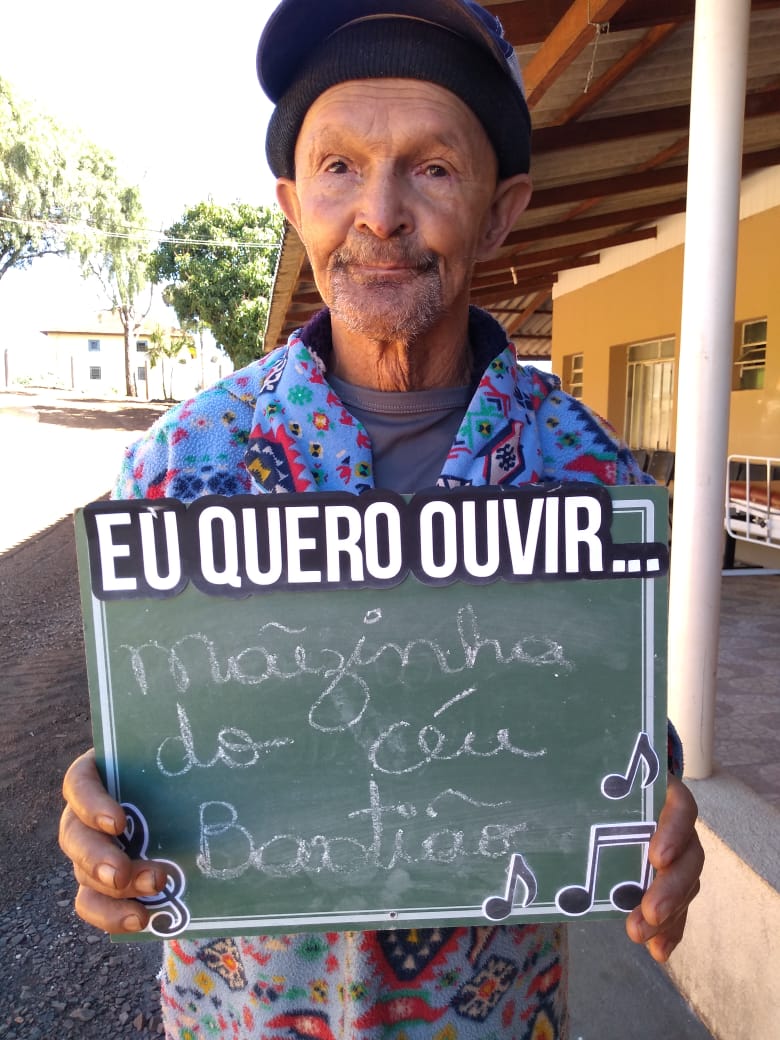 EU QUERO OUVIR...
Mãezinha
do céu
Bastião